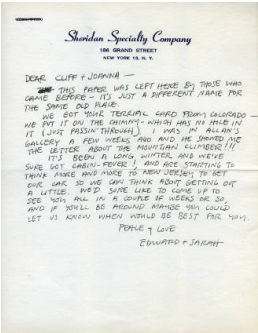 Sheridan Specialty Company
166 GRAND STREET
NEW YORK 13, N. Y.
DEAR CLIFF + JOANNA —
THIS PAPER WAS LEFT HERE BY THOSE WHO
CAME BEFORE — IT'S JUST A DIFFERENT NAME FOR
THE SAME OLD PLACE.
WE GOT YOUR TERRIAL CARD FROM COLORADO —
WE PUT IT ON THE CHIMNY — WHICH HAS A HOLE IN
IT (JUST PASSIN' THROUGH). I WAS IN ALLAN'S
GALLERY A FEW WEEKS AGO AND HE SHOWED ME
THE LETTER ABOUT THE MOUNTAIN CLIMBER!!!
IT'S BEEN A LONG, WINTER, AND WE'VE
SURE GOT CABIN-FEVER!, AND ARE STARTING TO
THINK MORE AND MORE TO NEW JERSEY TO GET
OUR CAR SO WE CAN THINK ABOUT GETTING OUT
A LITTLE. WE'D SURE LIKE TO COME UP TO
SEE YOU ALL IN A COUPLE OF WEEKS OR SO,
AND IF YOU'LL BE AROUND MAYBE YOU COULD
LET US KNOW WHEN WOULD BE BEST FOR YOU.
PEACE + LOVE
EDWARD + SARAH